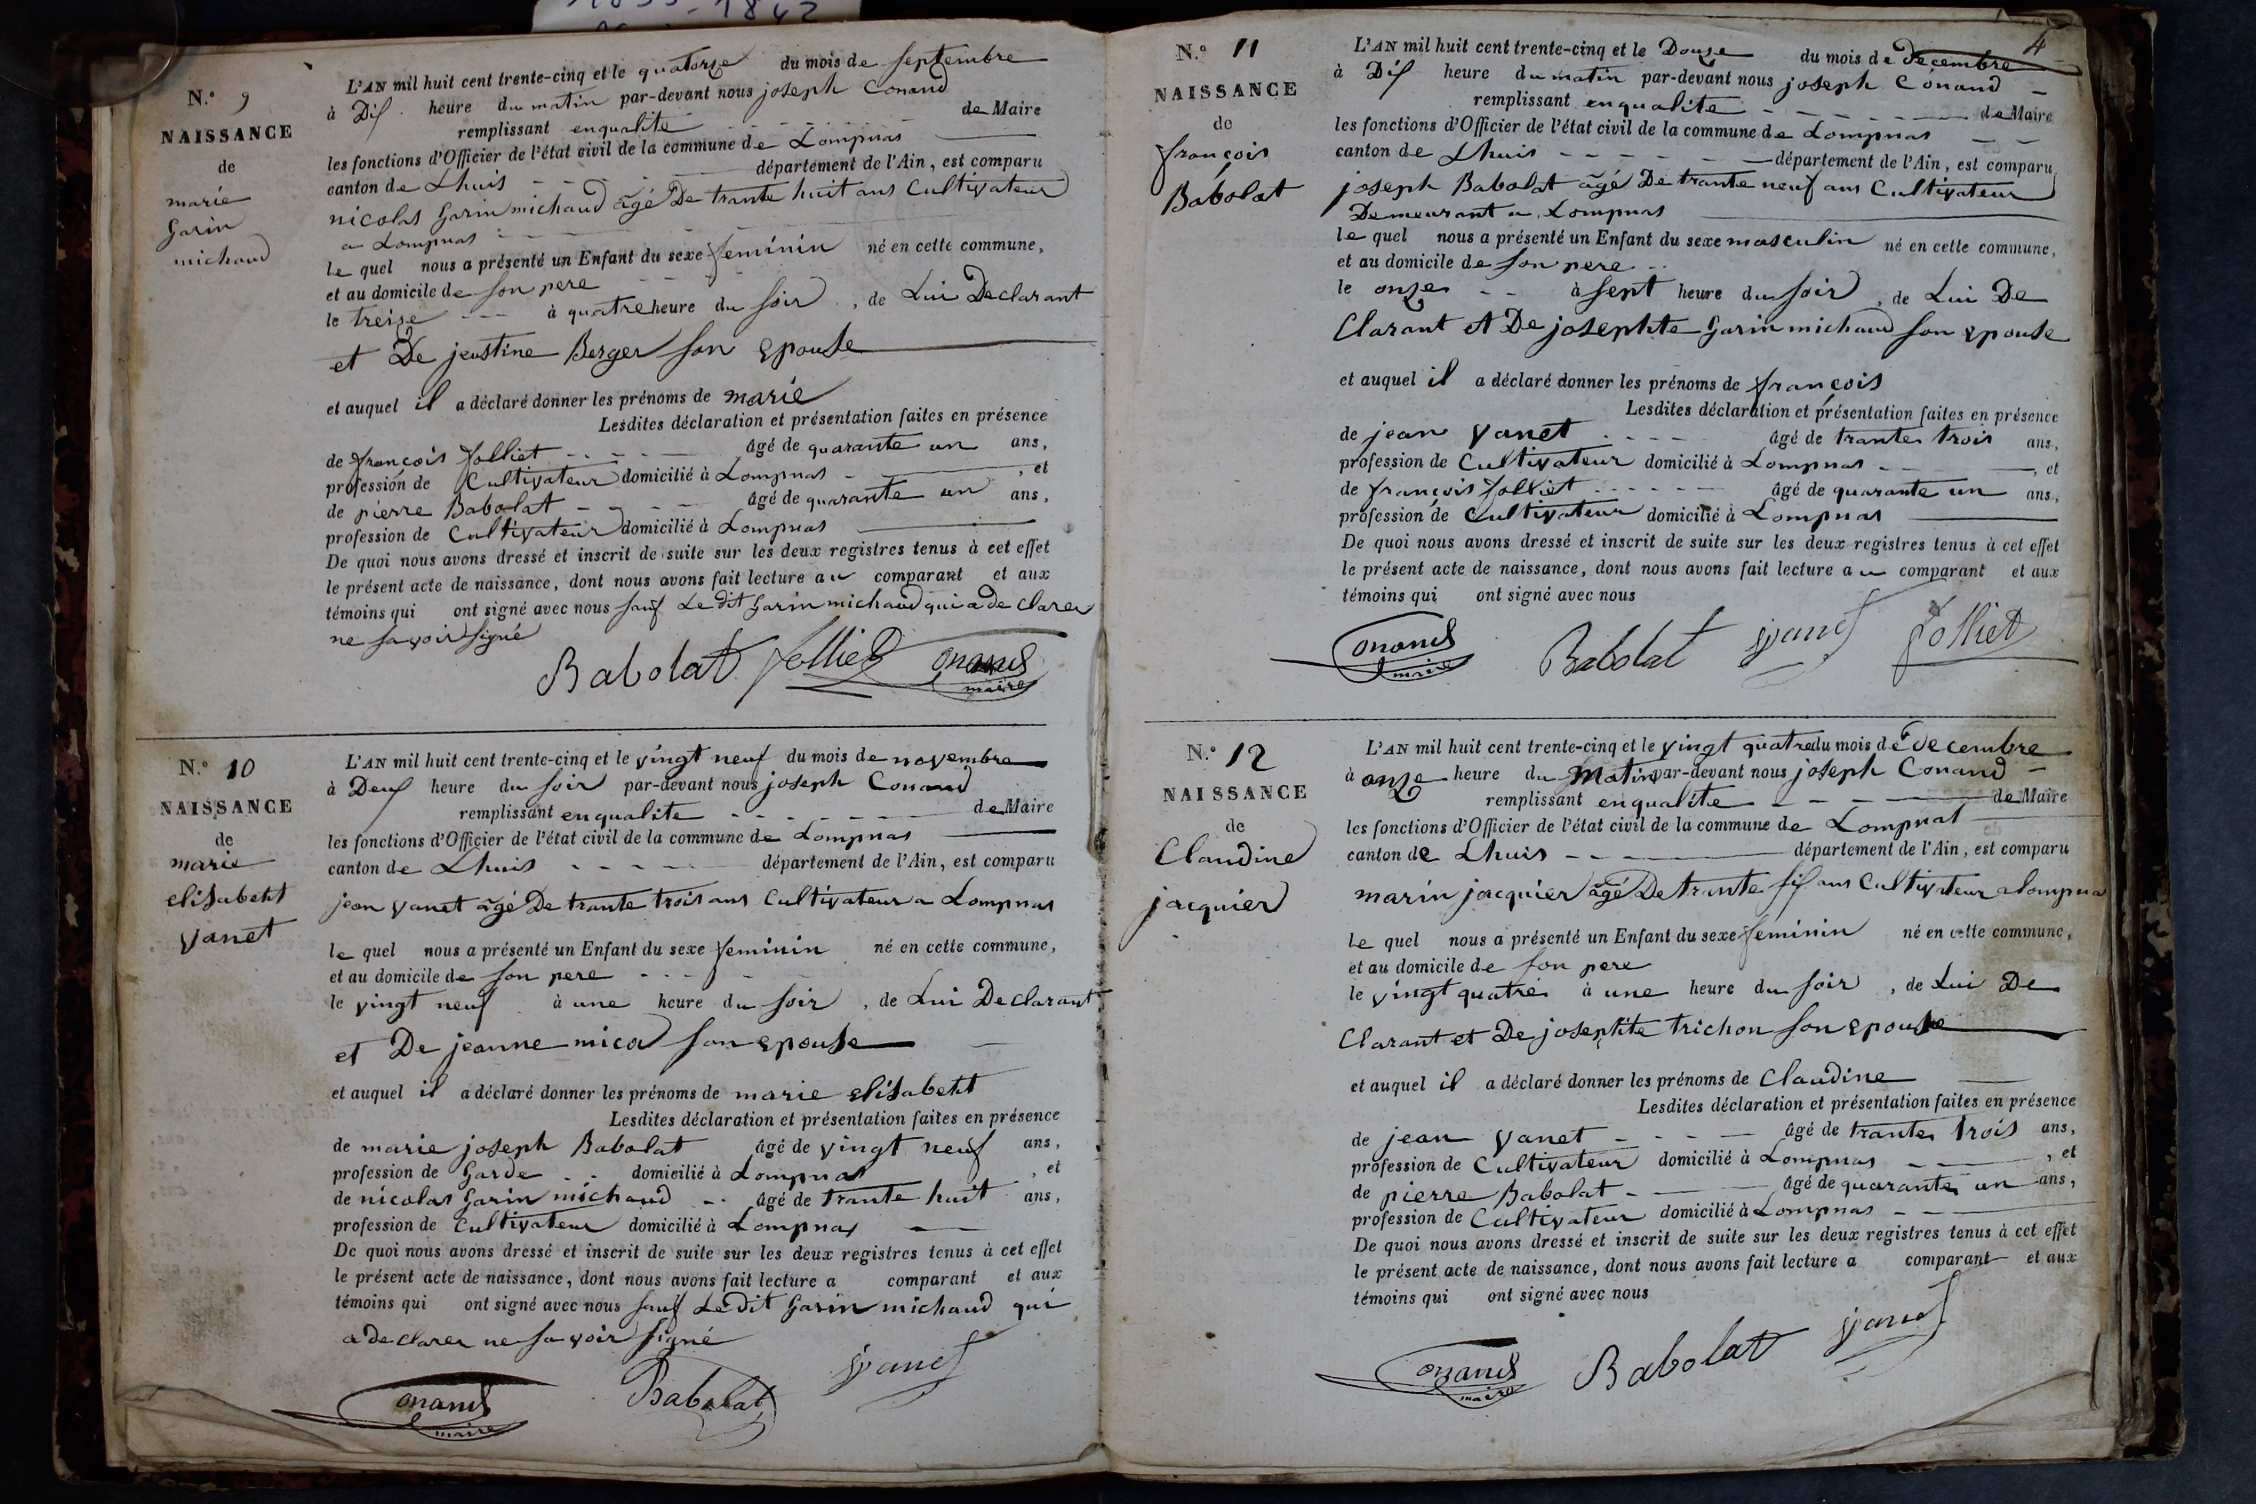 1835-1842
N.o 9
NAISSANCE
de
marie
Garin
michaud
L'AN mil huit cent trente-cinq et le quatorze du mois de septembre
à Dix heure du matin par-devant nous joseph Conand
remplissant enqualité de Maire
les fonctions d'Officier de l'état civil de la commune de Lompnas
canton de Lhuis département de l'Ain, est comparu
nicolas Garin michaud âgé De trante huit ans Cultivateur
a Lompnas
le quel nous a présenté un Enfant du sexe feminin né en cette commune,
et au domicile de son pere
le treize à quatre heure du soir, de Lui Declarant
et De jeustine Berger son Epouse
et auquel il a déclaré donner les prénoms de marie
Lesdites déclaration et présentation faites en présence
de françois Jolliet âgé de quarante un ans,
profession de Cultivateur domicilié à Lompnas, et
de pierre Babolat âgé de quarante un ans,
profession de Cultivateur domicilié à Lompnas
De quoi nous avons dressé et inscrit de suite sur les deux registres tenus à cet effet
le présent acte de naissance, dont nous avons fait lecture au comparant et aux
témoins qui ont signé avec nous sauf Le dit Garin michaud qui a de clarer
ne savoir signé
Babolat Jolliet Conand
maire
N.o 10
NAISSANCE
de
marie
elisabeht
vanet
L'AN mil huit cent trente-cinq et le vingt neuf du mois de novembre
à Deux heure du soir par-devant nous joseph Conand
remplissant enqualite de Maire
les fonctions d'Officier de l'état civil de la commune de Lompnas
canton de Lhuis département de l'Ain, est comparu
jean vanet âgé De trante trois ans Cultivateur a Lompnas
le quel nous a présenté un Enfant du sexe feminin né en cette commune,
et au domicile de son pere
le vingt neuf à une heure du soir, de Lui Declarant
et De jeanne mica son epouse
et auquel il a déclaré donner les prénoms de marie elisabeht
Lesdites déclaration et présentation faites en présence
de marie joseph Babolat âgé de vingt neuf ans,
profession de Garde domicilié à Lompnas, et
de nicolas Garin michaud âgé de trante huit ans,
profession de Cultivateur domicilié à Lompnas
De quoi nous avons dressé et inscrit de suite sur les deux registres tenus à cet effet
le présent acte de naissance, dont nous avons fait lecture a comparant et aux
témoins qui ont signé avec nous sauf Ledit Garin michaud qui
a de clarer ne savoir signé
Conand Babolat vanet
maire
4
N.o 11
NAISSANCE
de
françois
Babolat
L'AN mil huit cent trente-cinq et le Douze du mois de Decembre
à Dix heure du matin par-devant nous joseph Conand
remplissant enqualite de Maire
les fonctions d'Officier de l'état civil de la commune de Lompnas
canton de Lhuis département de l'Ain, est comparu
joseph Babolat âgé De trante neuf ans Cultivateur
Demeurant a Lompnas
le quel nous a présenté un Enfant du sexe masculin né en cette commune,
et au domicile de son pere
le onze à sept heure du soir, de Lui De
Clarant et De josephte Garin michaud son epouse
et auquel il a déclaré donner les prénoms de françois
Lesdites déclaration et présentation faites en présence
de jean vanet âgé de trante trois ans,
profession de Cultivateur domicilié à Lompnas, et
de françois Jolliet âgé de quarante un ans,
profession de Cultivateur domicilié à Lompnas
De quoi nous avons dressé et inscrit de suite sur les deux registres tenus à cet effet
le présent acte de naissance, dont nous avons fait lecture au comparant et aux
témoins qui ont signé avec nous
Conand Babolat vanet Jolliet
maire
N.o 12
NAISSANCE
de
Claudine
jacquier
L'AN mil huit cent trente-cinq et le vingt quatre du mois de decembre
à onze heure du Matin par-devant nous joseph Conand
remplissant enqualite de Maire
les fonctions d'Officier de l'état civil de la commune de Lompnas
canton de Lhuis département de l'Ain, est comparu
marin jacquier âgé De trante six ans Cultivateur a lompna
le quel nous a présenté un Enfant du sexe feminin né en cette commune,
et au domicile de son pere
le vingt quatre à une heure du soir, de Lui De
Clarant et De josephte trichon son epouse
et auquel il a déclaré donner les prénoms de Claudine
Lesdites déclaration et présentation faites en présence
de jean vanet âgé de trante trois ans,
profession de Cultivateur domicilié à Lompnas, et
de pierre Babolat âgé de quarante un ans,
profession de Cultivateur domicilié à Lompnas
De quoi nous avons dressé et inscrit de suite sur les deux registres tenus à cet effet
le présent acte de naissance, dont nous avons fait lecture a comparant et aux
témoins qui ont signé avec nous
Conand Babolat vanet
maire